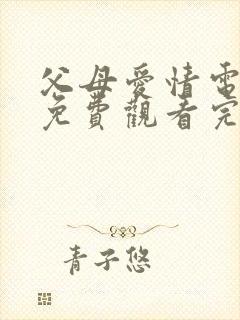 父母愛情電
免費觀看完
青子悠